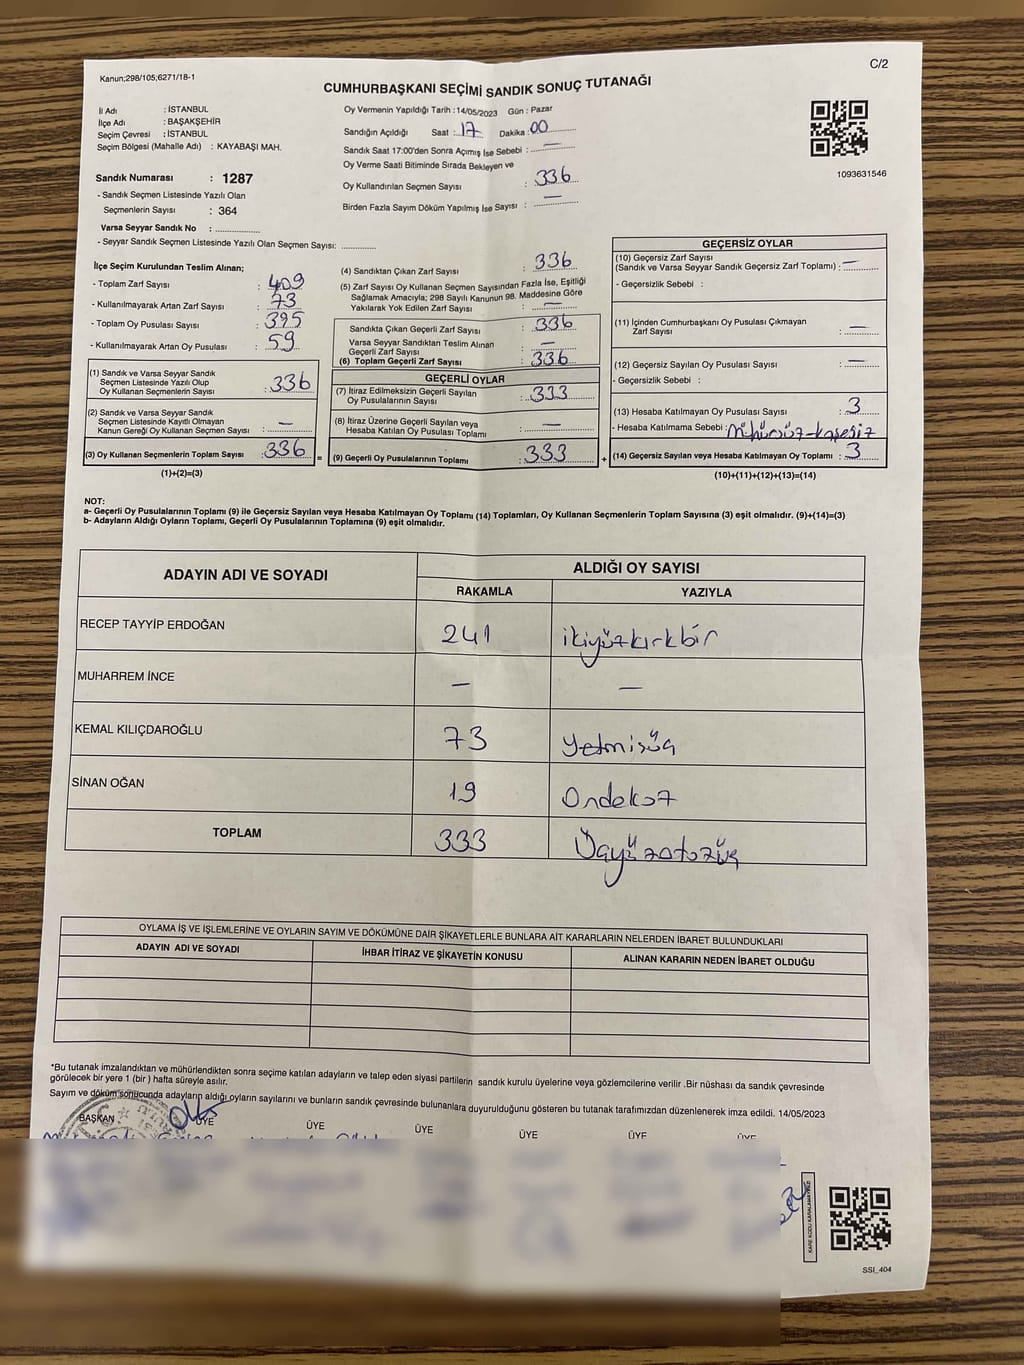 Kanun;298/105;6271/18-1
C/2
CUMHURBAŞKANI SEÇİMİ SANDIK SONUÇ TUTANAĞI
İl Adı : İSTANBUL
İlçe Adı : BAŞAKŞEHİR
Seçim Çevresi : İSTANBUL
Seçim Bölgesi (Mahalle Adı) : KAYABAŞI MAH.
Sandık Numarası : 1287
- Sandık Seçmen Listesinde Yazılı Olan
Seçmenlerin Sayısı : 364
Varsa Seyyar Sandık No : ..............
- Seyyar Sandık Seçmen Listesinde Yazılı Olan Seçmen Sayısı: ............
Oy Vermenin Yapıldığı Tarih : 14/05/2023 Gün : Pazar
Sandığın Açıldığı Saat : 17 Dakika : 00
Sandık Saat 17:00'den Sonra Açımış İse Sebebi : —
Oy Verme Saati Bitiminde Sırada Bekleyen ve
Oy Kullandırılan Seçmen Sayısı : 336
Birden Fazla Sayım Döküm Yapılmış İse Sayısı : —
1093631546
İlçe Seçim Kurulundan Teslim Alınan;
- Toplam Zarf Sayısı : 409
- Kullanılmayarak Artan Zarf Sayısı : 73
- Toplam Oy Pusulası Sayısı : 395
- Kullanılmayarak Artan Oy Pusulası : 59
(1) Sandık ve Varsa Seyyar Sandık
Seçmen Listesinde Yazılı Olup
Oy Kullanan Seçmenlerin Sayısı : 336
(2) Sandık ve Varsa Seyyar Sandık
Seçmen Listesinde Kayıtlı Olmayan
Kanun Gereği Oy Kullanan Seçmen Sayısı : —
(3) Oy Kullanan Seçmenlerin Toplam Sayısı : 336
(1)+(2)=(3)
(4) Sandıktan Çıkan Zarf Sayısı : 336
(5) Zarf Sayısı Oy Kullanan Seçmen Sayısından Fazla İse, Eşitliği
Sağlamak Amacıyla; 298 Sayılı Kanunun 98. Maddesine Göre
Yakılarak Yok Edilen Zarf Sayısı : —
Sandıkta Çıkan Geçerli Zarf Sayısı : 336
Varsa Seyyar Sandıktan Teslim Alınan
Geçerli Zarf Sayısı : —
(6) Toplam Geçerli Zarf Sayısı : 336
GEÇERLİ OYLAR
(7) İtiraz Edilmeksizin Geçerli Sayılan
Oy Pusulalarının Sayısı : 333
(8) İtiraz Üzerine Geçerli Sayılan veya
Hesaba Katılan Oy Pusulası Toplamı : —
= (9) Geçerli Oy Pusulalarının Toplamı : 333 +
GEÇERSİZ OYLAR
(10) Geçersiz Zarf Sayısı
(Sandık ve Varsa Seyyar Sandık Geçersiz Zarf Toplamı) : —
- Geçersizlik Sebebi :
(11) İçinden Cumhurbaşkanı Oy Pusulası Çıkmayan
Zarf Sayısı : —
(12) Geçersiz Sayılan Oy Pusulası Sayısı : —
- Geçersizlik Sebebi :
(13) Hesaba Katılmayan Oy Pusulası Sayısı : 3
- Hesaba Katılmama Sebebi : Mühürsüz-kaşesiz
(14) Geçersiz Sayılan veya Hesaba Katılmayan Oy Toplamı : 3
(10)+(11)+(12)+(13)=(14)
NOT:
a- Geçerli Oy Pusulalarının Toplamı (9) ile Geçersiz Sayılan veya Hesaba Katılmayan Oy Toplamı (14) Toplamları, Oy Kullanan Seçmenlerin Toplam Sayısına (3) eşit olmalıdır. (9)+(14)=(3)
b- Adayların Aldığı Oyların Toplamı, Geçerli Oy Pusulalarının Toplamına (9) eşit olmalıdır.
ADAYIN ADI VE SOYADI ALDIĞI OY SAYISI
RAKAMLA YAZIYLA
RECEP TAYYİP ERDOĞAN 241 ikiyüzkırkbir
MUHARREM İNCE — —
KEMAL KILIÇDAROĞLU 73 Yetmişüç
SİNAN OĞAN 19 Ondokuz
TOPLAM 333 Üçyüzotuzüç
OYLAMA İŞ VE İŞLEMLERİNE VE OYLARIN SAYIM VE DÖKÜMÜNE DAİR ŞİKAYETLERLE BUNLARA AİT KARARLARIN NELERDEN İBARET BULUNDUKLARI
ADAYIN ADI VE SOYADI İHBAR İTİRAZ VE ŞİKAYETİN KONUSU ALINAN KARARIN NEDEN İBARET OLDUĞU
*Bu tutanak imzalandıktan ve mühürlendikten sonra seçime katılan adayların ve talep eden siyasi partilerin sandık kurulu üyelerine veya gözlemcilerine verilir .Bir nüshası da sandık çevresinde
görülecek bir yere 1 (bir ) hafta süreyle asılır.
Sayım ve döküm sonucunda adayların aldığı oyların sayılarını ve bunların sandık çevresinde bulunanlara duyurulduğunu gösteren bu tutanak tarafımızdan düzenlenerek imza edildi. 14/05/2023
BAŞKAN ÜYE ÜYE ÜYE ÜYE ÜYE ÜYE
KARE KODU KARALAMAYINIZ
SSI_404